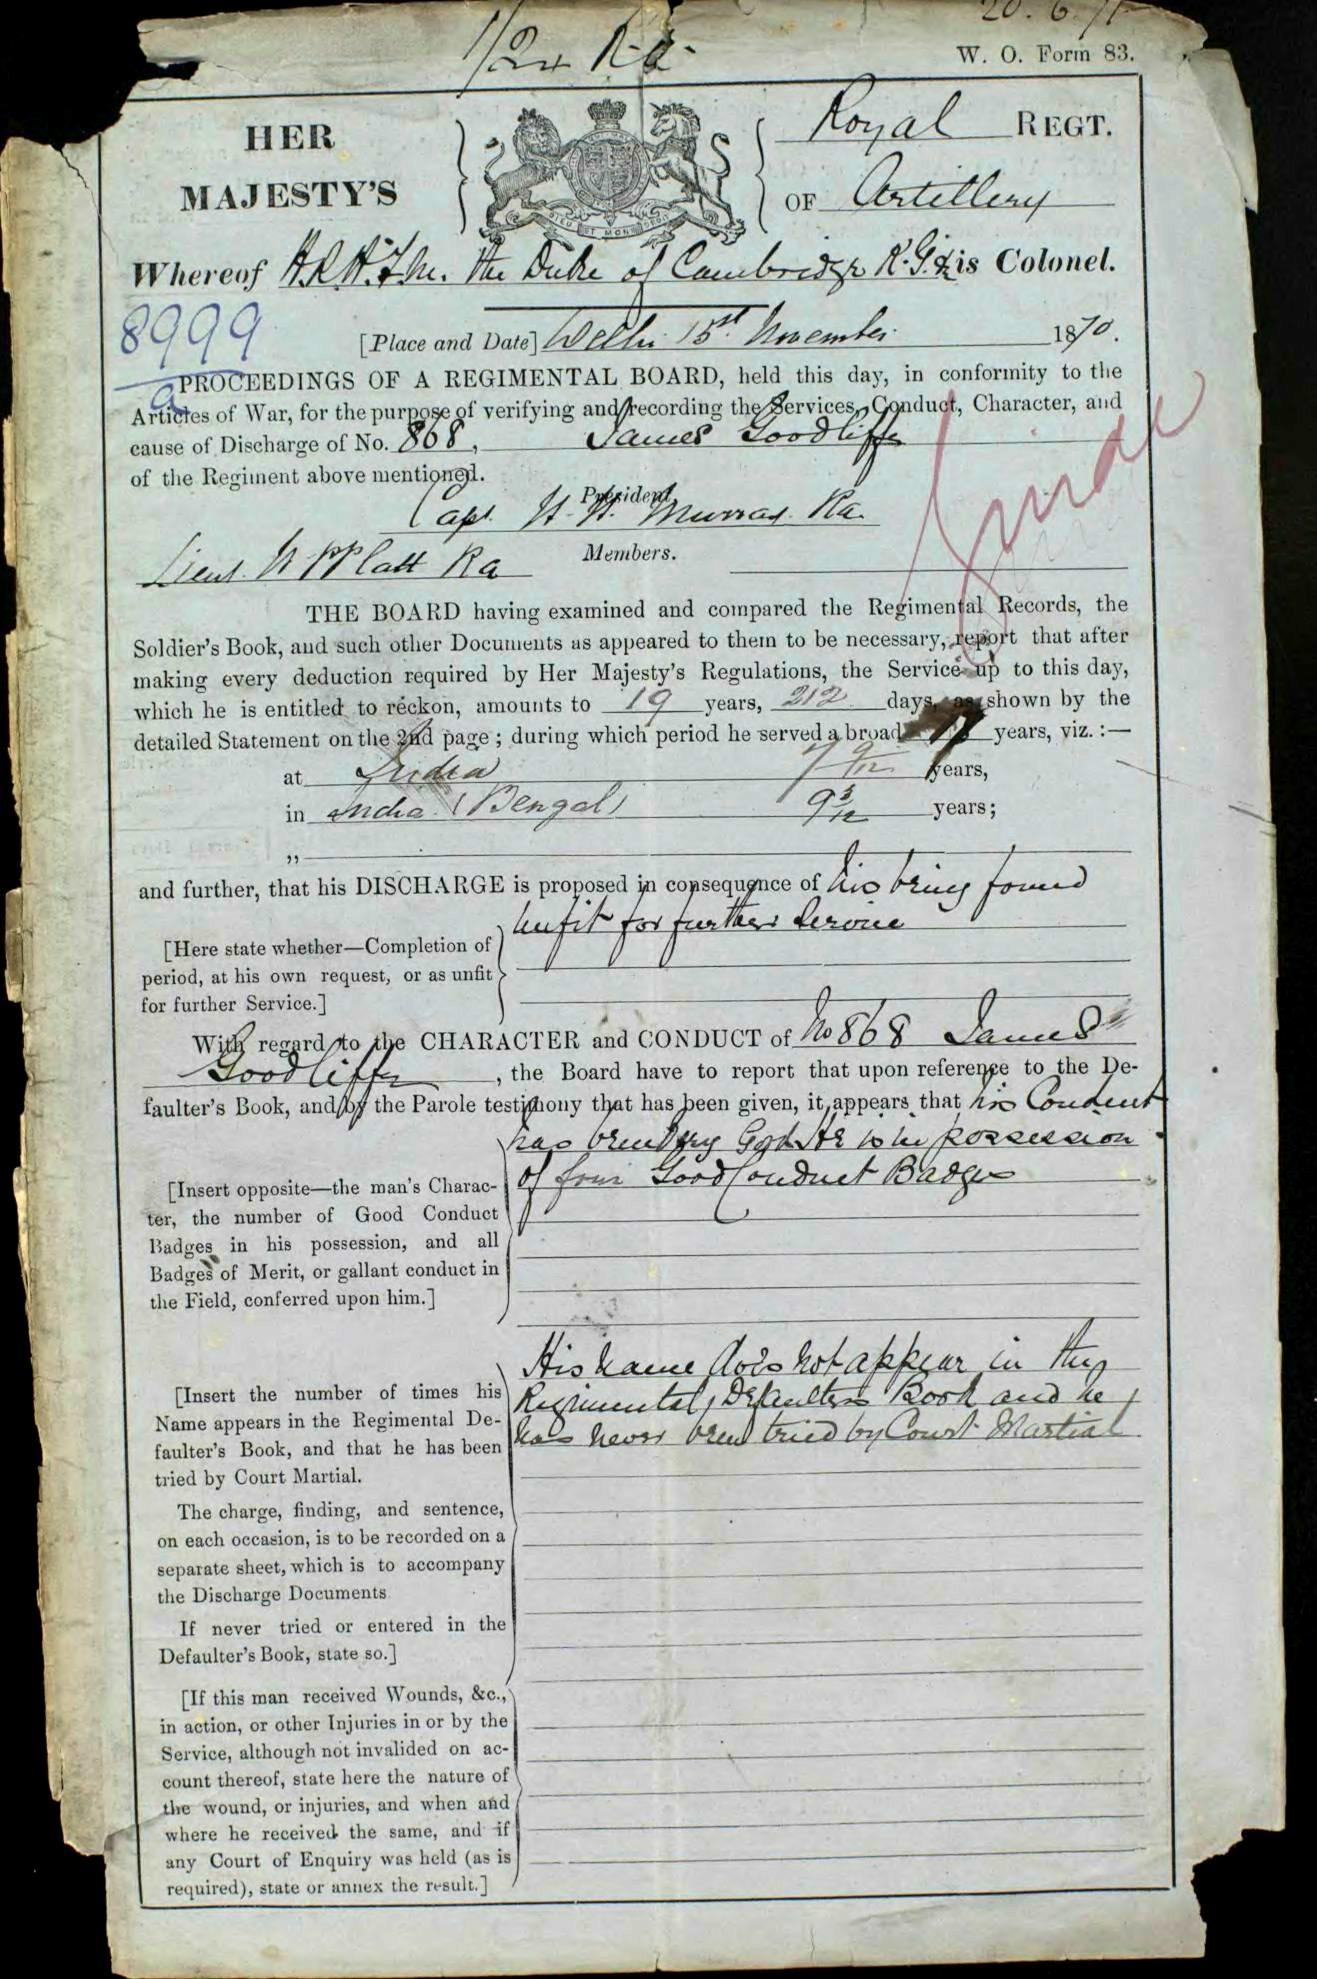 20. 6. 71
1/24 R.A.
W. O. Form 83.
HER
MAJESTY'S
DIEU ET MON DROIT
Royal REGT.
OF Artillery
Whereof H.R.H. F.M. the Duke of Cambridge K.G. & is Colonel.
8999
a
[Place and Date] Delhi 15th November 1870.
PROCEEDINGS OF A REGIMENTAL BOARD, held this day, in conformity to the
Articles of War, for the purpose of verifying and recording the Services, Conduct, Character, and
cause of Discharge of No. 868, James Goodliffe
of the Regiment above mentioned.
President.
Capt. H. H. Murray Ra.
Members.
Lieut. Platt Ra
THE BOARD having examined and compared the Regimental Records, the
Soldier's Book, and such other Documents as appeared to them to be necessary, report that after
making every deduction required by Her Majesty's Regulations, the Service up to this day,
which he is entitled to reckon, amounts to 19 years, 212 days, as shown by the
detailed Statement on the 2nd page ; during which period he served abroad years, viz. :—
at India 7 9/12 years,
in India (Bengal) 9 3/12 years;
„
and further, that his DISCHARGE is proposed in consequence of his being found
unfit for further Service
[Here state whether—Completion of
period, at his own request, or as unfit
for further Service.]
With regard to the CHARACTER and CONDUCT of No 868 James
Goodliffe, the Board have to report that upon reference to the De-
faulter's Book, and by the Parole testimony that has been given, it appears that his Conduct
has been Very Good. He is in possession
of four Good Conduct Badges
[Insert opposite—the man's Charac-
ter, the number of Good Conduct
Badges in his possession, and all
Badges of Merit, or gallant conduct in
the Field, conferred upon him.]
His name does not appear in the
Regimental Defaulters Book and he
has never been tried by Court Martial
[Insert the number of times his
Name appears in the Regimental De-
faulter's Book, and that he has been
tried by Court Martial.
The charge, finding, and sentence,
on each occasion, is to be recorded on a
separate sheet, which is to accompany
the Discharge Documents
If never tried or entered in the
Defaulter's Book, state so.]
[If this man received Wounds, &c.,
in action, or other Injuries in or by the
Service, although not invalided on ac-
count thereof, state here the nature of
the wound, or injuries, and when and
where he received the same, and if
any Court of Enquiry was held (as is
required), state or annex the result.]